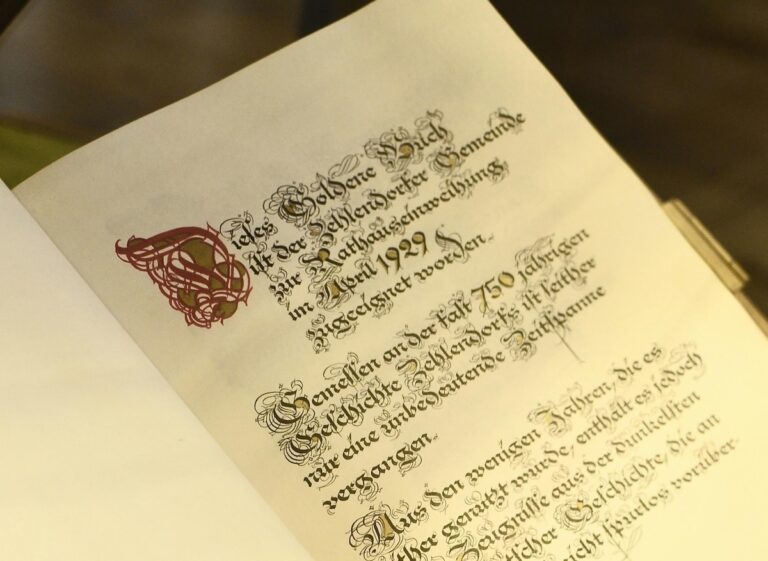 Dieses Goldene Buch
ist der Zehlendorfer Gemeinde
zur Rathauseinweihung
im April 1929
zugeeignet worden.
Gemessen an der fast 750 jährigen
Geschichte Zehlendorfs ist seither
nur eine unbedeutende Zeitspanne
vergangen.
Aus den wenigen Jahren, die es
genutzt wurde, enthält es jedoch
Zeugnisse aus der dunkelsten
Geschichte, die an
spurlos vorüber-